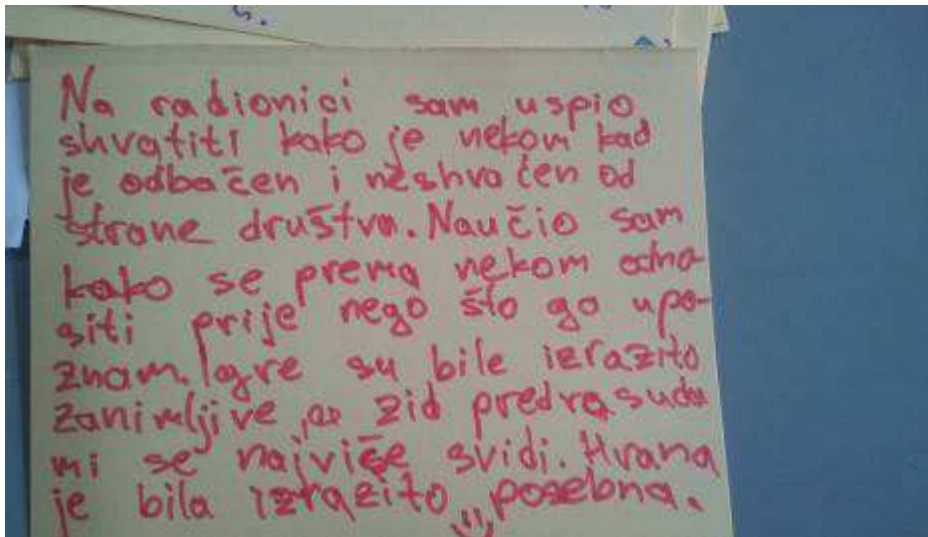 5.
Na radionici sam uspio
shvatiti kako je nekom kad
je odbačen i neshvaćen od
strane društva. Naučio sam
kako se prema nekom odno-
siti prije nego što go upo-
znam. Igre su bile izrazito
zanimljive, a zid predrasuda
mi se najviše svidi. Hrana
je bila izrazito „posebna.